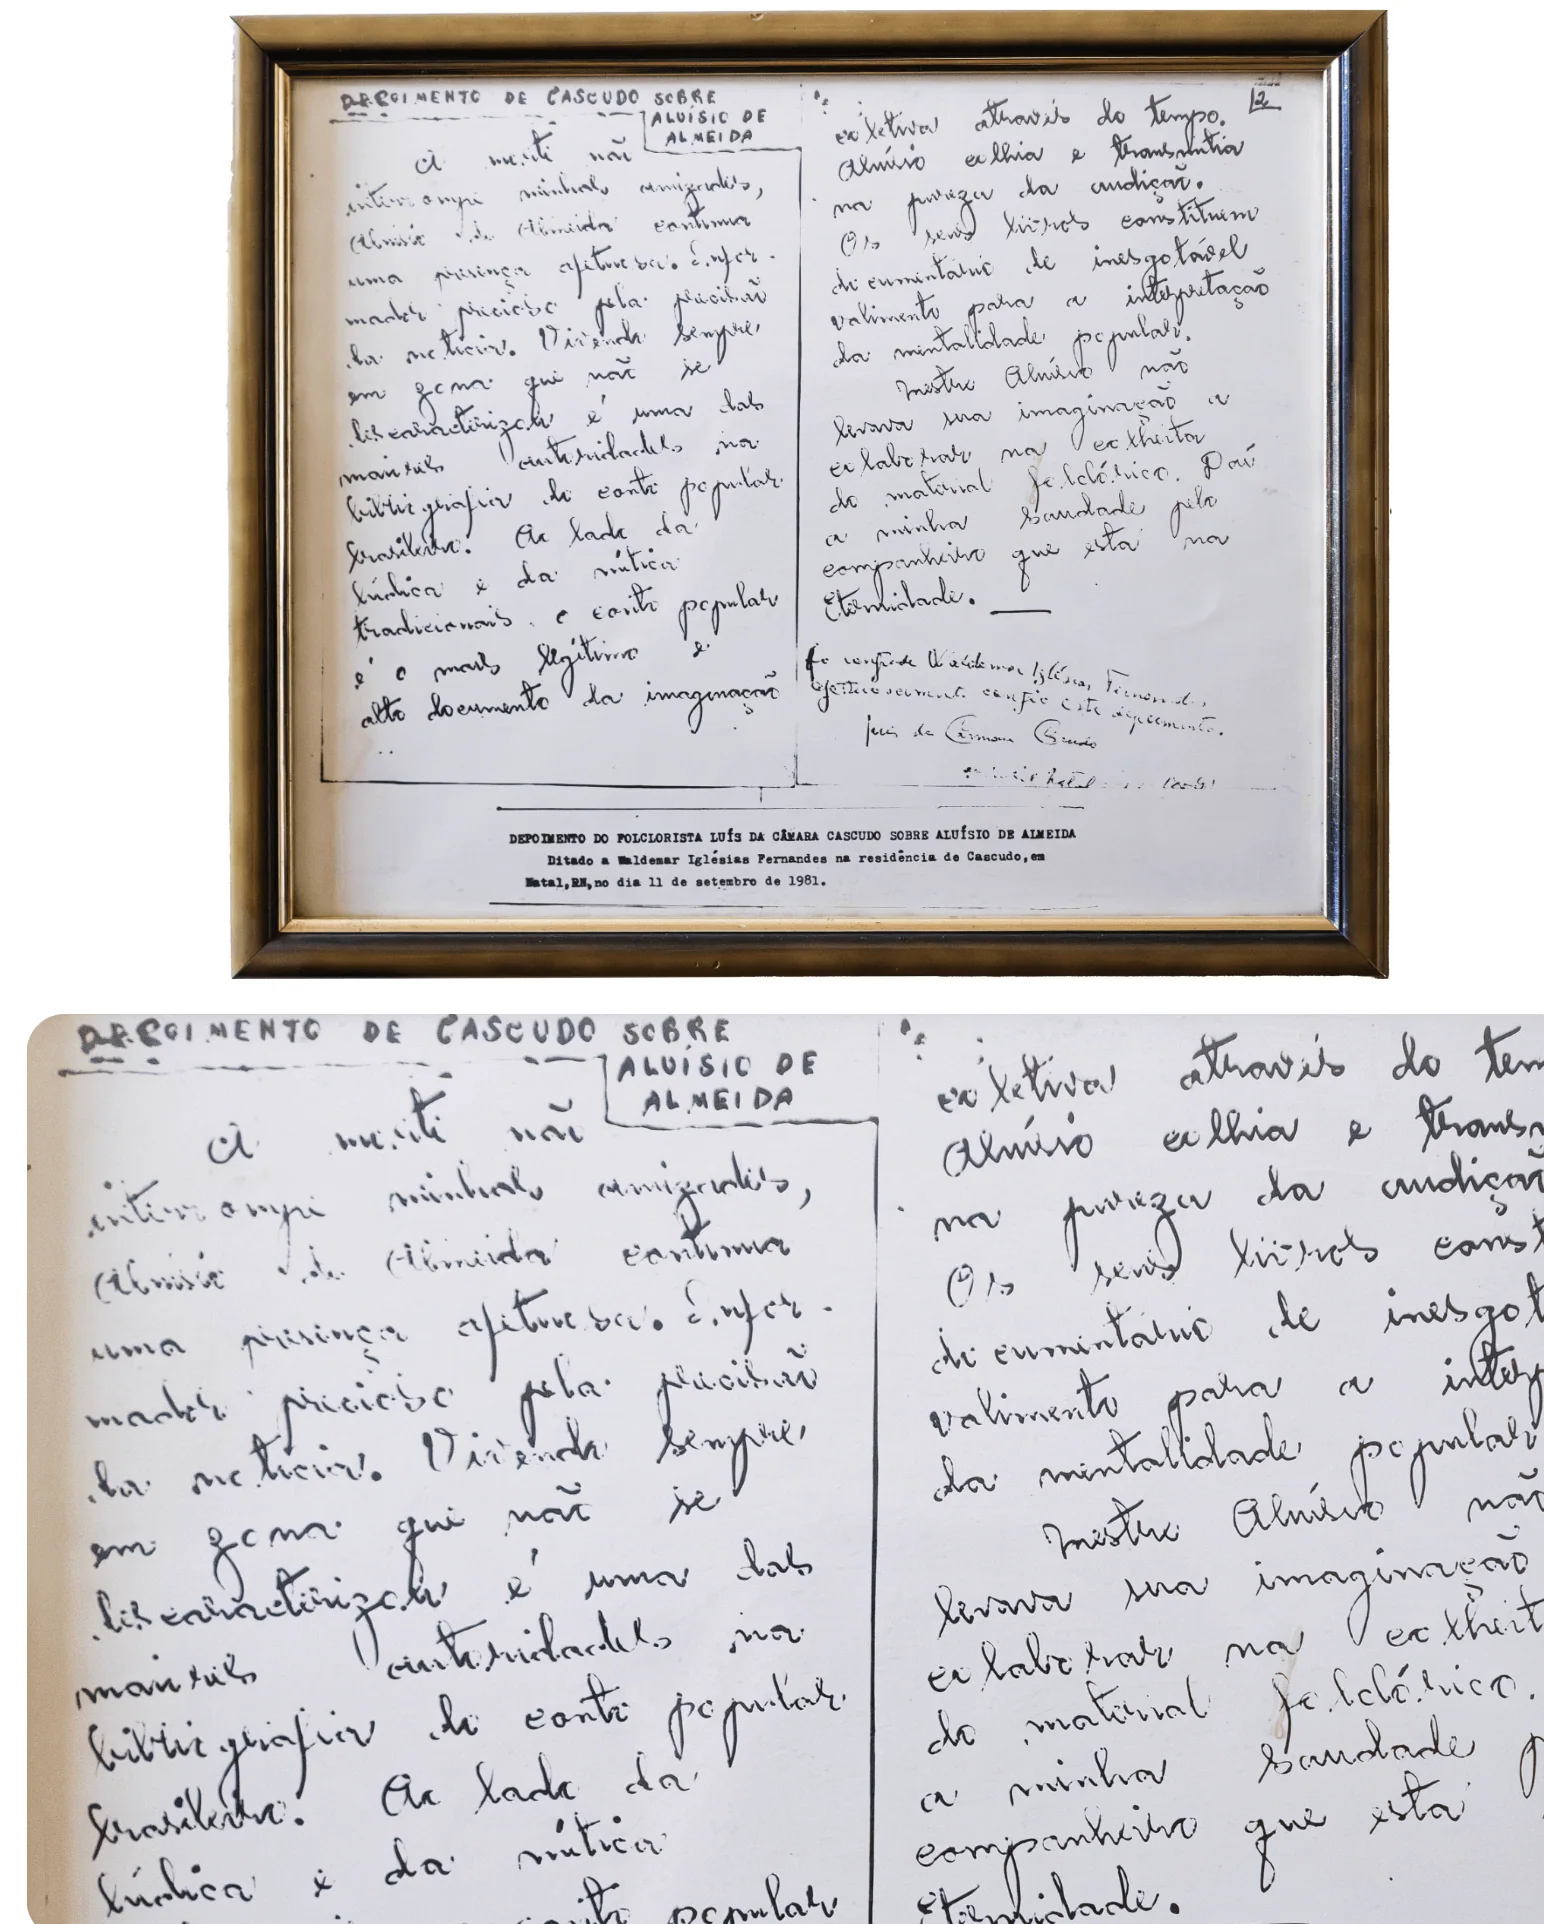 DEPOIMENTO DE CASCUDO SOBRE
ALUÍSIO DE
ALMEIDA
A morte não
interrompe minhas amizades,
Aluísio de Almeida continua
uma presença afetuosa. Infor-
mador precioso pela precisão
da notícia. Vivendo sempre
em zona que não se
descaracterizou é uma das
maiores autoridades na
bibliografia do conto popular
brasileiro. Ao lado da
lúdica e da mítica
tradicionais, o conto popular
é o mais legítimo e
alto documento da imaginação
2
coletiva através do tempo.
Aluísio colhia e transmitia
na pureza da audição.
Os seus livros constituem
documentário de inesgotável
valimento para a interpretação
da mentalidade popular.
Mestre Aluísio não
levava sua imaginação a
colaborar na colheita
do material folclórico. Daí
a minha saudade pelo
companheiro que está na
Eternidade.
Ao confrade Waldemar Iglésias Fernandes,
afetuosamente confio este depoimento.
Luís da Câmara Cascudo
Natal
DEPOIMENTO DO FOLCLORISTA LUÍS DA CÂMARA CASCUDO SOBRE ALUÍSIO DE ALMEIDA
Ditado a Waldemar Iglésias Fernandes na residência de Cascudo,em
Natal,RN,no dia 11 de setembro de 1981.
DEPOIMENTO DE CASCUDO SOBRE
ALUÍSIO DE
ALMEIDA
A morte não
interrompe minhas amizades,
Aluísio de Almeida continua
uma presença afetuosa. Infor-
mador precioso pela precisão
da notícia. Vivendo sempre
em zona que não se
descaracterizou é uma das
maiores autoridades na
bibliografia do conto popular
brasileiro. Ao lado da
lúdica e da mítica
conto popular
coletiva através do tem
Aluísio colhia e transm
na pureza da audição
Os seus livros const
documentário de inesgot
valimento para a interp
da mentalidade popular
Mestre Aluísio não
levava sua imaginação
colaborar na colheit
do material folclórico.
a minha saudade p
companheiro que está
Eternidade.